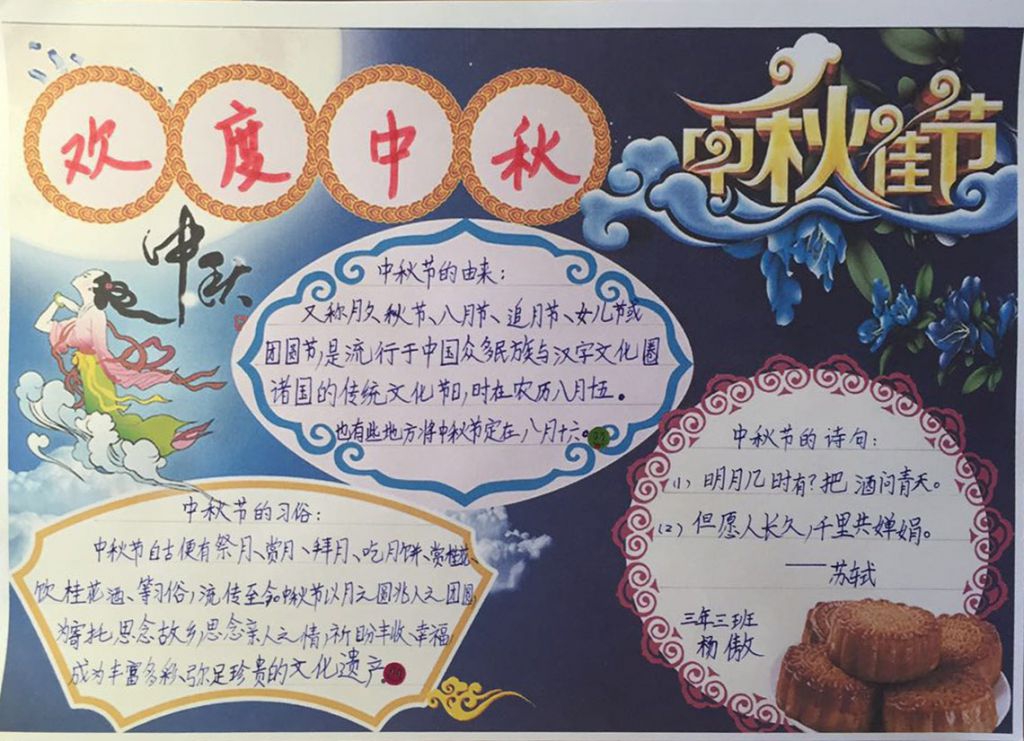 欢度中秋
中秋佳节
中秋
中秋节的由来:
又称月夕、秋节、八月节、追月节、女儿节或
团圆节,是流行于中国众多民族与汉字文化圈
诸国的传统文化节日,时在农历八月十五。
也有些地方将中秋节定在八月十六。
中秋节的习俗:
中秋节自古便有祭月、赏月、拜月、吃月饼、赏桂花、
饮桂花酒、等习俗,流传至今。中秋节以月之圆兆人之团圆,
为寄托思念故乡,思念亲人之情,祈盼丰收、幸福,
成为丰富多彩、弥足珍贵的文化遗产。
中秋节的诗句:
(1)明月几时有?把酒问青天。
(2)但愿人长久,千里共婵娟。
——苏轼
三年三班
杨傲